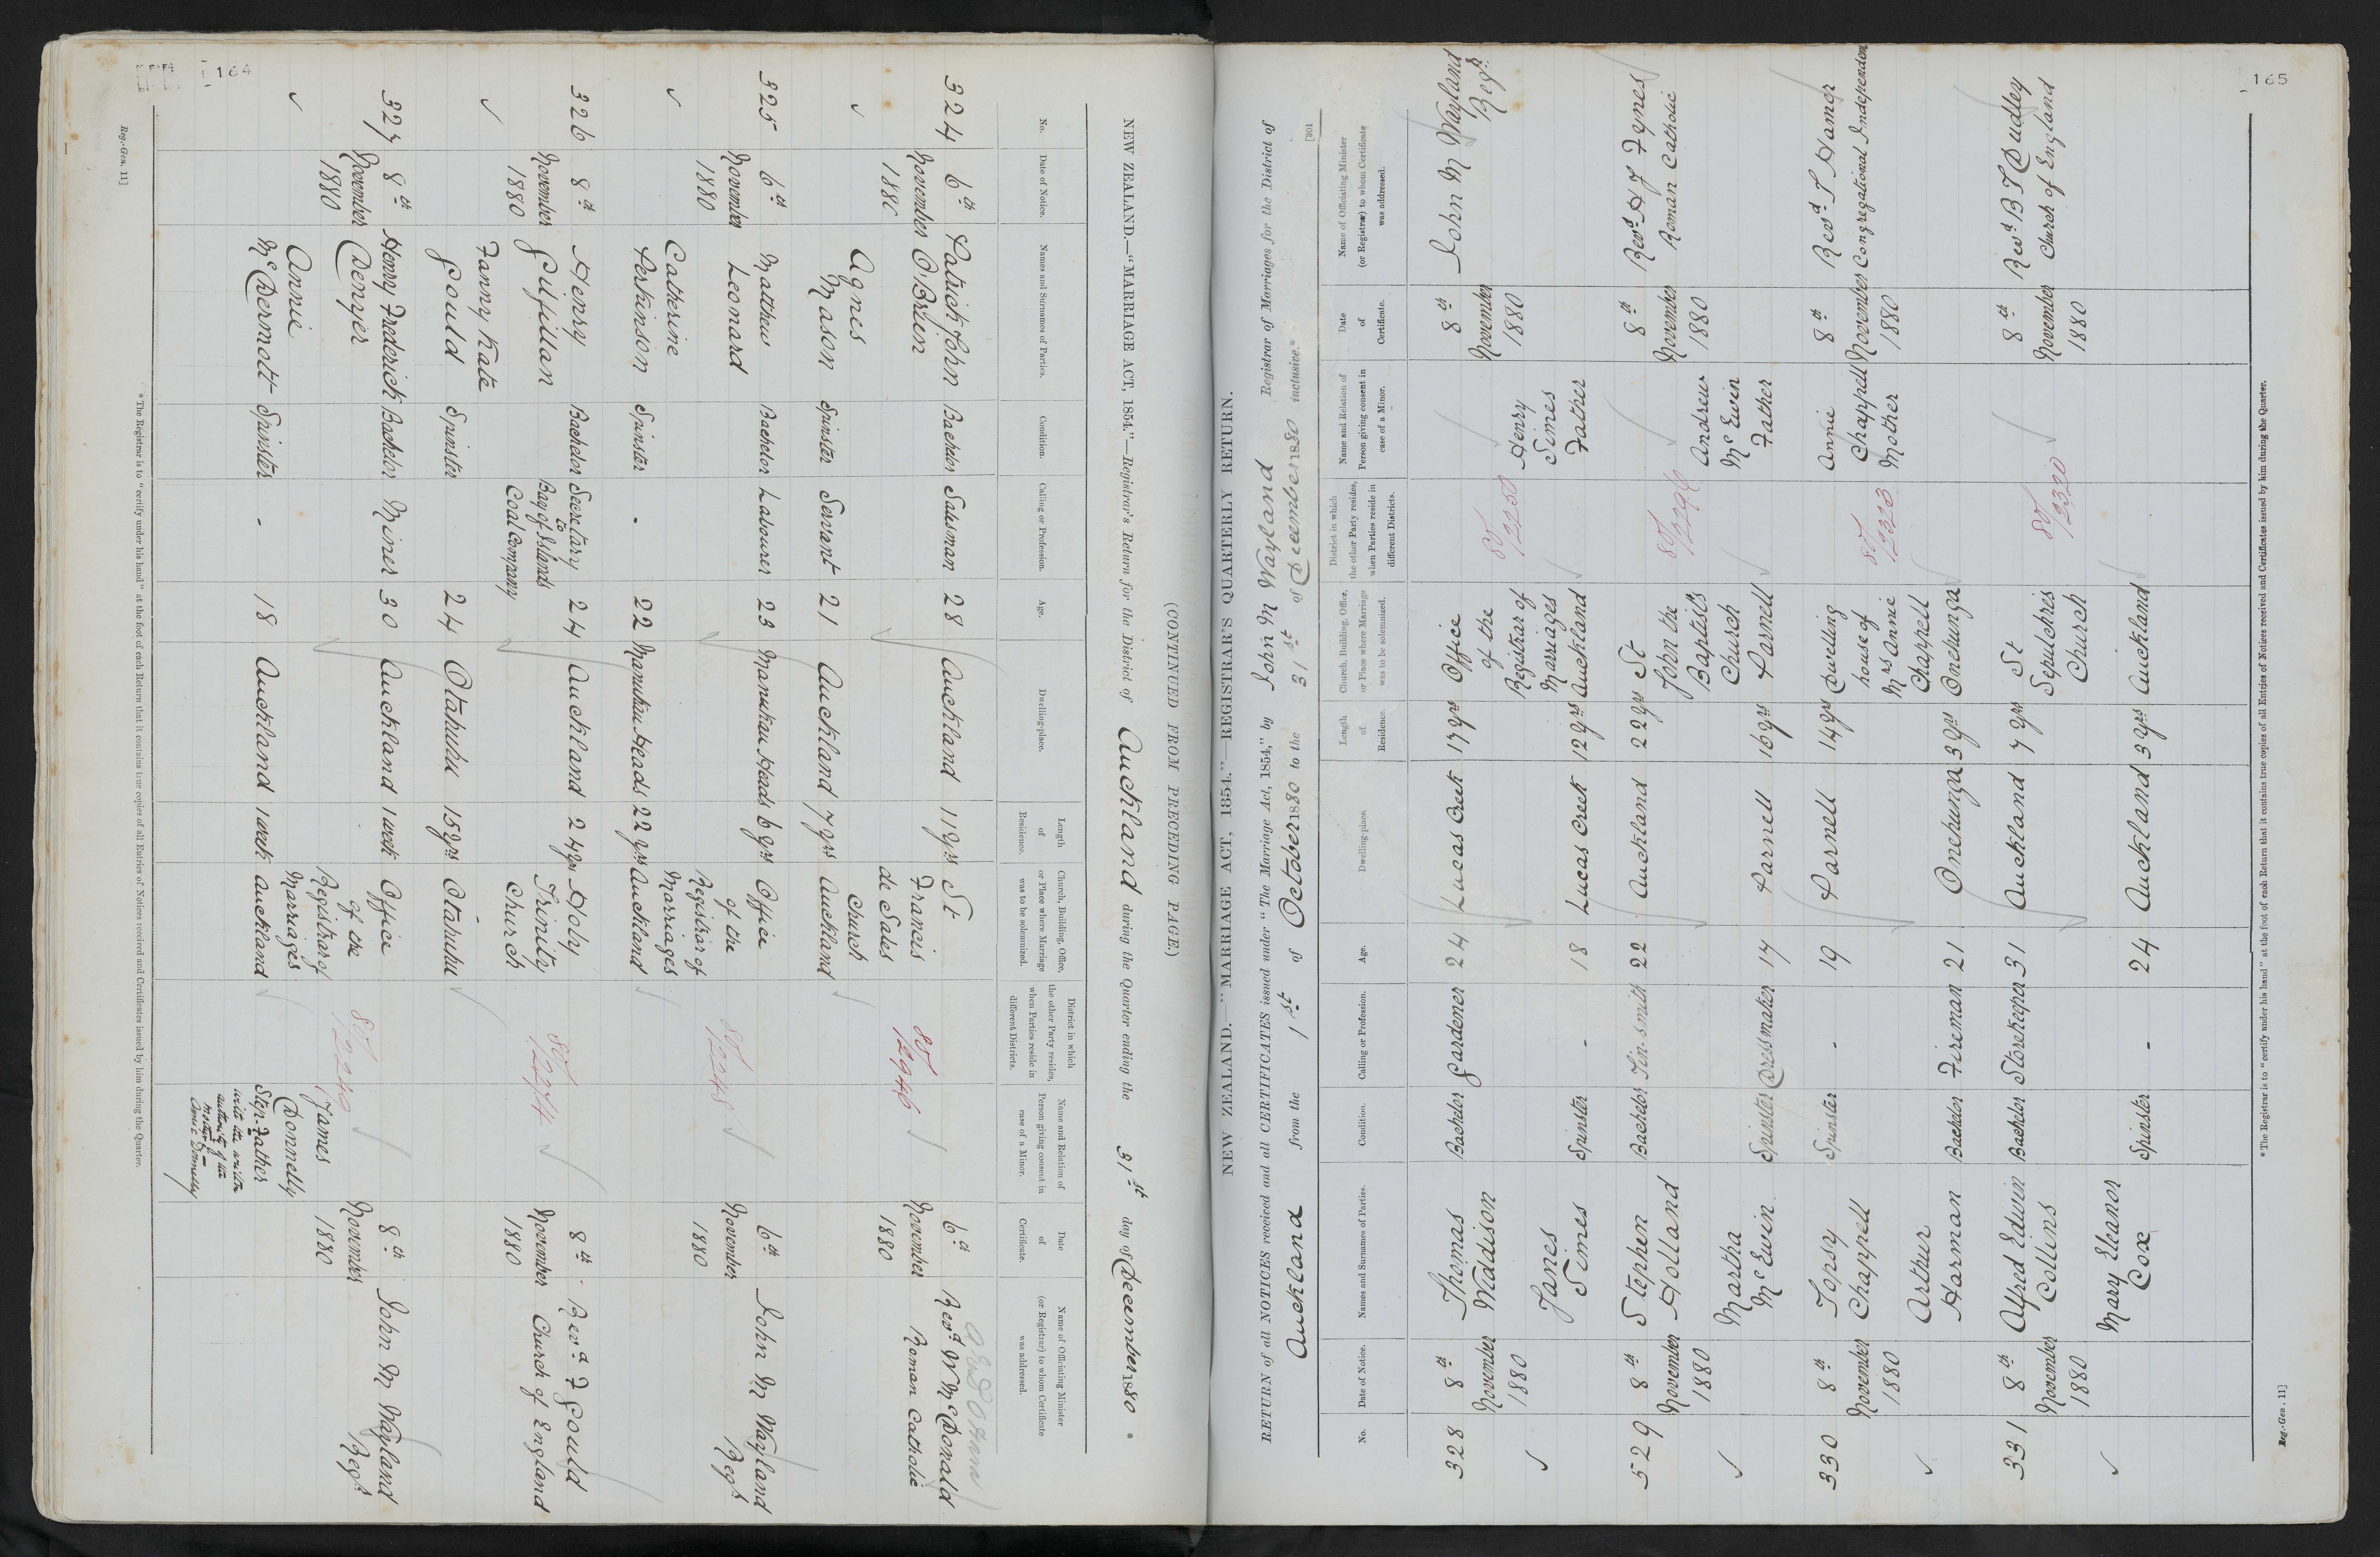 164
(CONTINUED FROM PRECEDING PAGE.)
NEW ZEALAND.—"MARRIAGE ACT, 1854."—Registrar's Return for the District of Auckland during the Quarter ending the 31st day of December 1880 *
No.
Date of Notice.
Names and Surnames of Parties.
Condition.
Calling or Profession.
Age.
Dwelling-place.
Length of Residence.
Church, Building, Office, or Place where Marriage was to be solemnized.
District in which the other Party resides, when Parties reside in different Districts.
Name and Relation of Person giving consent in case of a Minor.
Date of Certificate.
Name of Officiating Minister (or Registrar) to whom Certificate was addressed.
324 6th November 1880
Patrick John O'Brien Bachelor Salesman 28 Auckland 11 yrs
Agnes Mason Spinster Servant 21 Auckland 7 yrs
St Francis de Sales Church Auckland
80/2946
6th November 1880
Revd W McDonald
Roman Catholic
325 6th November 1880
Matthew Leonard Bachelor Labourer 23 Manukau Heads 6 yrs
Catherine Perkinson Spinster - 22 Manukau Heads 22 yrs
Office of the Registrar of Marriages Auckland
80/2248
6th November 1880
John M Wayland Regr
326 8th November 1880
Henry Gilfillan Bachelor Secretary to Bay of Islands Coal Company 24 Auckland 24 yrs
Fanny Kate Gould Spinster 24 Otahuhu 15 yrs
Holy Trinity Church Otahuhu
80/2274
8th November 1880
Revd F Gould
Church of England
327 8th November 1880
Henry Frederick Denyer Bachelor Miner 30 Auckland 1 week
Annie McDermott Spinster - 18 Auckland 1 week
Office of the Registrar of Marriages Auckland
80/2249
James Donnelly
Step-Father
with the written
authority of the
mother
Annie Donnelly
8th November 1880
John M Wayland Regr
* The Registrar is to "certify under his hand" at the foot of each Return that it contains true copies of all Entries of Notices received and Certificates issued by him during the Quarter.
Reg.-Gen. 11]
165
[301
NEW ZEALAND.—"MARRIAGE ACT, 1854."—REGISTRAR'S QUARTERLY RETURN.
RETURN of all NOTICES received and all CERTIFICATES issued under "The Marriage Act, 1854," by John M Wayland Registrar of Marriages for the District of
Auckland from the 1st of October 1880 to the 31st of December 1880 inclusive.*
No.
Date of Notice.
Names and Surnames of Parties.
Condition.
Calling or Profession.
Age.
Dwelling-place.
Length of Residence.
Church, Building, Office, or Place where Marriage was to be solemnized.
District in which the other Party resides, when Parties reside in different Districts.
Name and Relation of Person giving consent in case of a Minor.
Date of Certificate.
Name of Officiating Minister (or Registrar) to whom Certificate was addressed.
328 8th November 1880
Thomas Waddison Bachelor Gardener 24 Lucas Creek 17 yrs
Janes Simes Spinster - 18 Lucas Creek 12 yrs
Office of the Registrar of Marriages Auckland
80/2250
Henry Simes Father
8th November 1880
John M Wayland Regr
529 8th November 1880
Stephen Holland Bachelor Tin-smith 22 Auckland 22 yrs
Martha McEwin Spinster Dressmaker 17 Parnell 16 yrs
St John the Baptists Church Parnell
80/2296
Andrew McEwin Father
8th November 1880
Revd H F Fynes
Roman Catholic
330 8th November 1880
Topsy Chappell Spinster - 19 Parnell 14 yrs
Arthur Harman Bachelor Fireman 21 Onehunga 3 yrs
Dwelling house of Mrs Annie Chappell Onehunga
80/2323
Annie Chappell Mother
8th November 1880
Revd T Hamer
Congregational Independent
331 8th November 1880
Alfred Edwin Collins Bachelor Storekeeper 31 Auckland 7 yrs
Mary Eleanor Cox Spinster - 24 Auckland 3 yrs
St Sepulchres Church Auckland
80/2320
8th November 1880
Revd B T Dudley
Church of England
* The Registrar is to "certify under his hand" at the foot of each Return that it contains true copies of all Entries of Notices received and Certificates issued by him during the Quarter.
Reg.-Gen. 11]